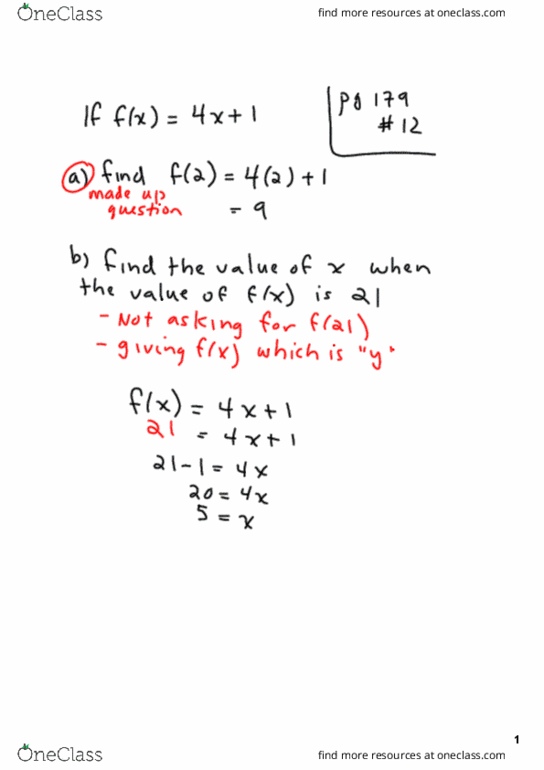 OneClass
find more resources at oneclass.com
If f(x) = 4x+1
Pg 179
#12
a) find f(2) = 4(2)+1
made up
question
= 9
b) find the value of x when
the value of f(x) is 21
- Not asking for f(21)
- giving f(x) which is "y"
f(x) = 4x+1
21 = 4x+1
21-1 = 4x
20 = 4x
5 = x
1
OneClass
find more resources at oneclass.com